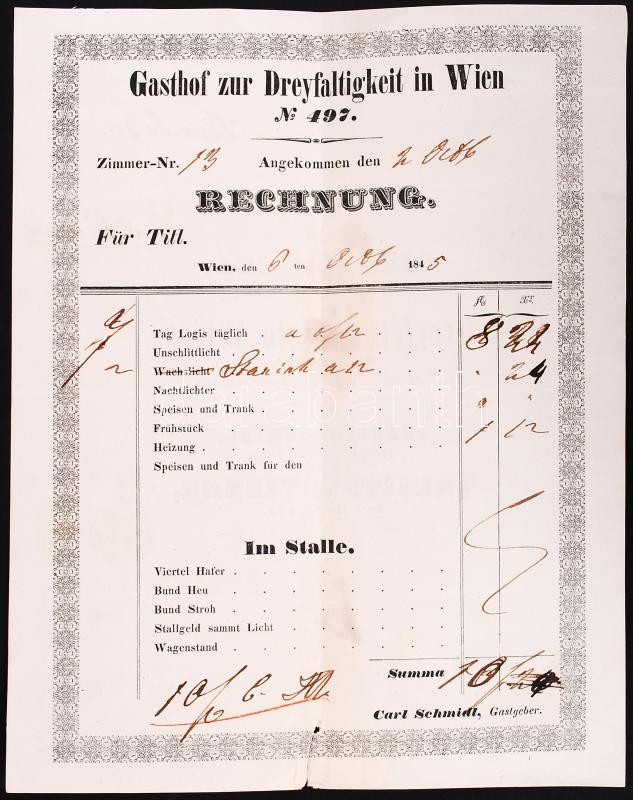 Gasthof zur Dreyfaltigkeit in Wien
№ 497.
Zimmer-Nr. 13 Angekommen den 2 Octb
RECHNUNG.
Für Titl.
Wien, den 6 ten Octb 1845
fl. xr.
Tag Logis täglich 8
Unschlittlicht
Wachslicht 24
Nachtlichter
Speisen und Trank
Frühstück 1 12
Heizung
Speisen und Trank für den
Im Stalle.
Viertel Hafer
Bund Heu
Bund Stroh
Stallgeld sammt Licht
Wagenstand
Summa 10
Carl Schmidt, Gastgeber.
darabanth